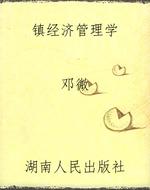 镇经济管理学
邓微
湖南人民出版社